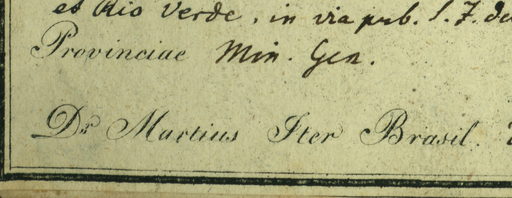 et Rio Verde, in via pub. S. J. de
Provinciae Min. Gen.
Dr. Martius Iter Brasil.